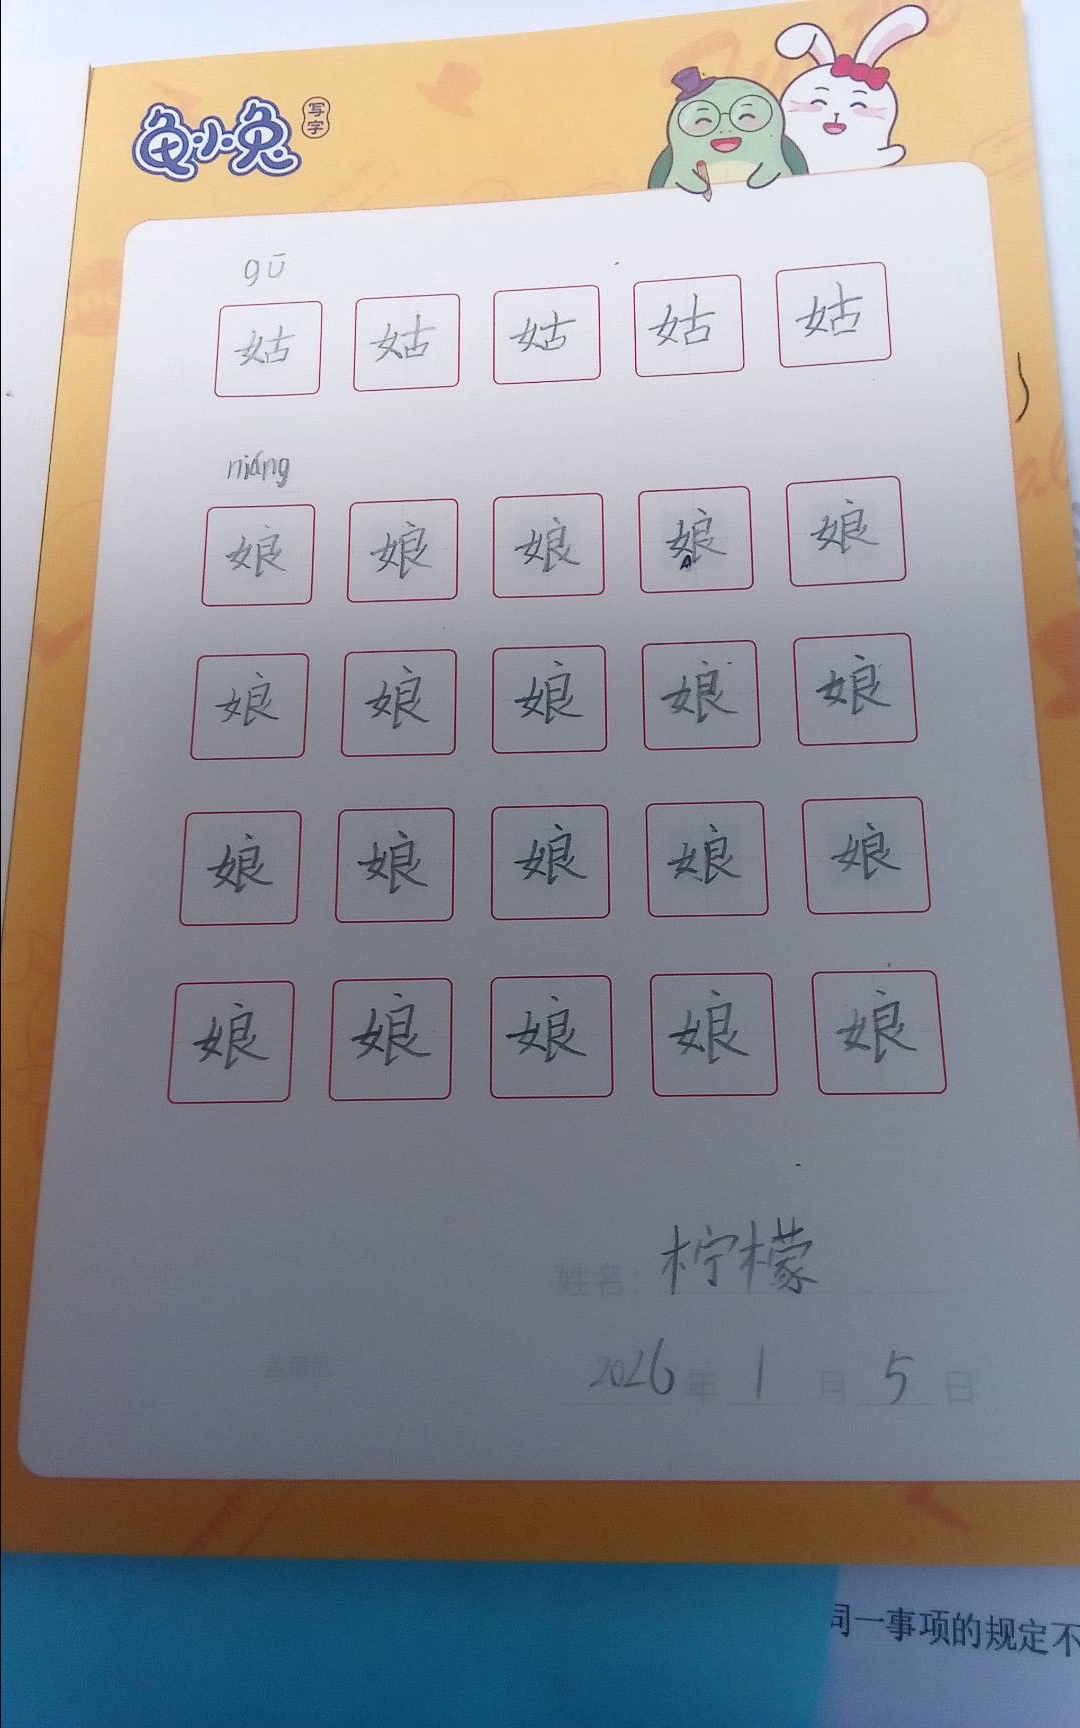 龟小兔 写字
gū
姑 姑 姑 姑 姑
niáng
娘 娘 娘 娘 娘
娘 娘 娘 娘 娘
娘 娘 娘 娘 娘
娘 娘 娘 娘 娘
姓名: 柠檬
2026年 1 月 5 日
同一事项的规定不